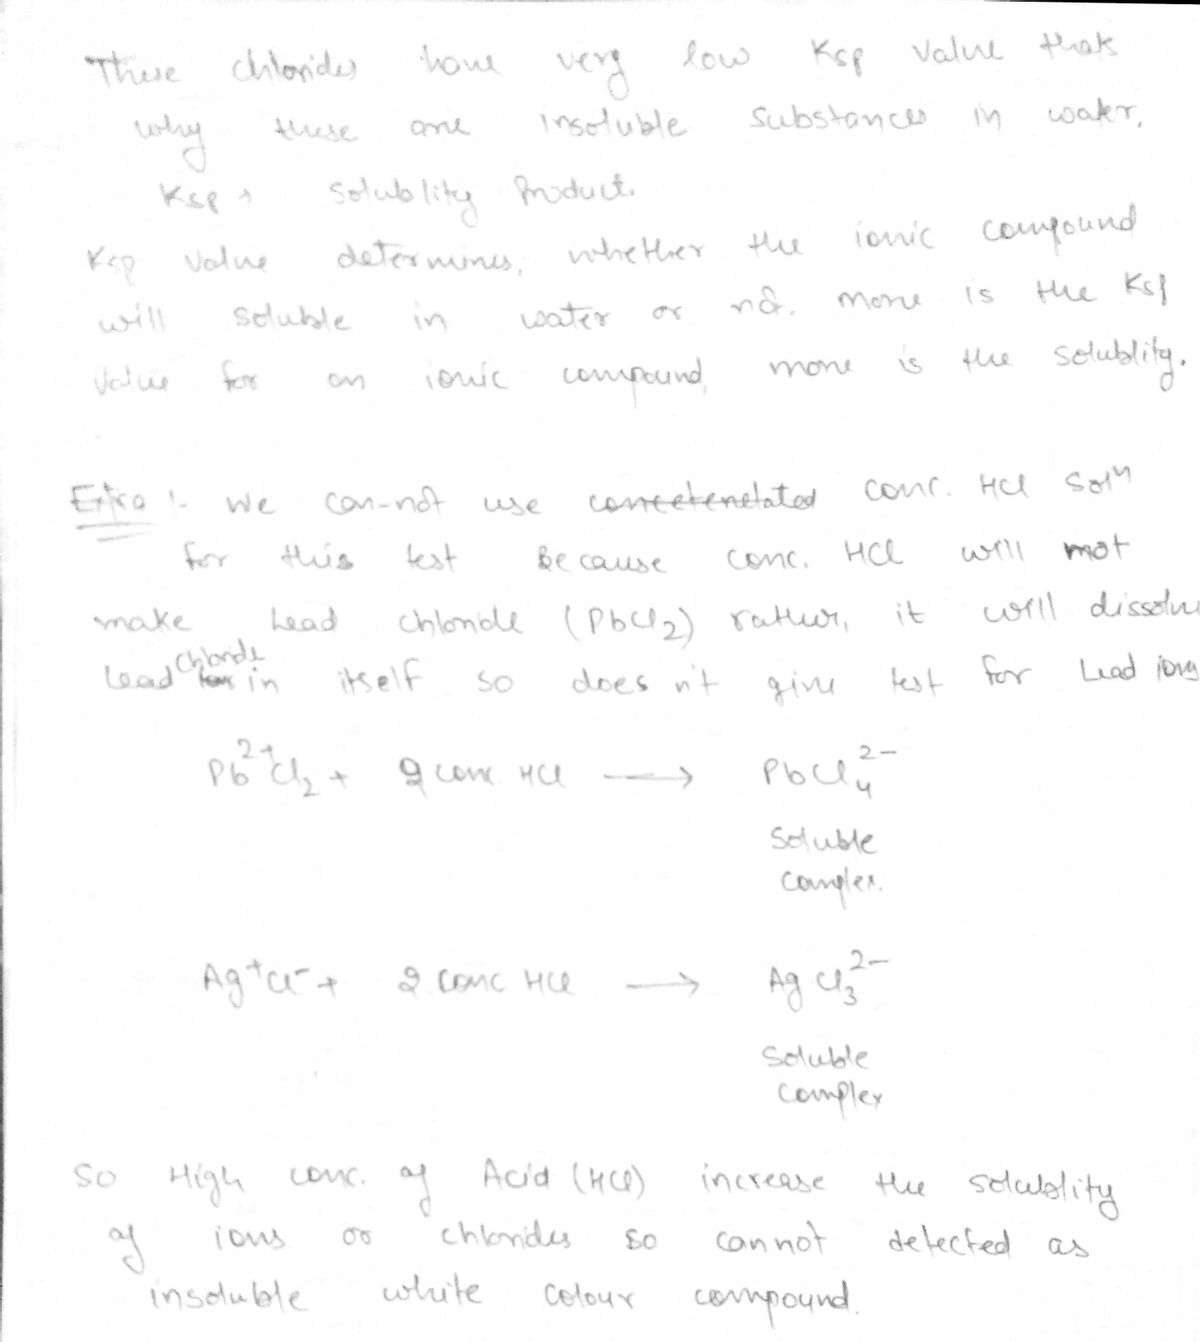 These chlorides have very low Ksp value thats
why these are insoluble substances in water.
Ksp → Solublity Product.
Ksp value determines, whether the ionic compound
will soluble in water or not. more is the Ksp
value for an ionic compound, more is the solublity.
Extra :- We can-not use concetenetated conc. HCl Solⁿ
for this test Because conc. HCl will not
make Lead chloride (PbCl₂) rather, it will dissolve
Lead Chloride in itself so does n't give test for Lead ions
Pb²⁺Cl₂ + 2 conc HCl ⟶ PbCl₄²⁻
Soluble
complex.
Ag⁺Cl⁻ + 2 conc HCl ⟶ AgCl₃²⁻
Soluble
complex
So High conc. of Acid (HCl) increase the solublity
of ions or chlorides so cannot detected as
insoluble white colour compound.